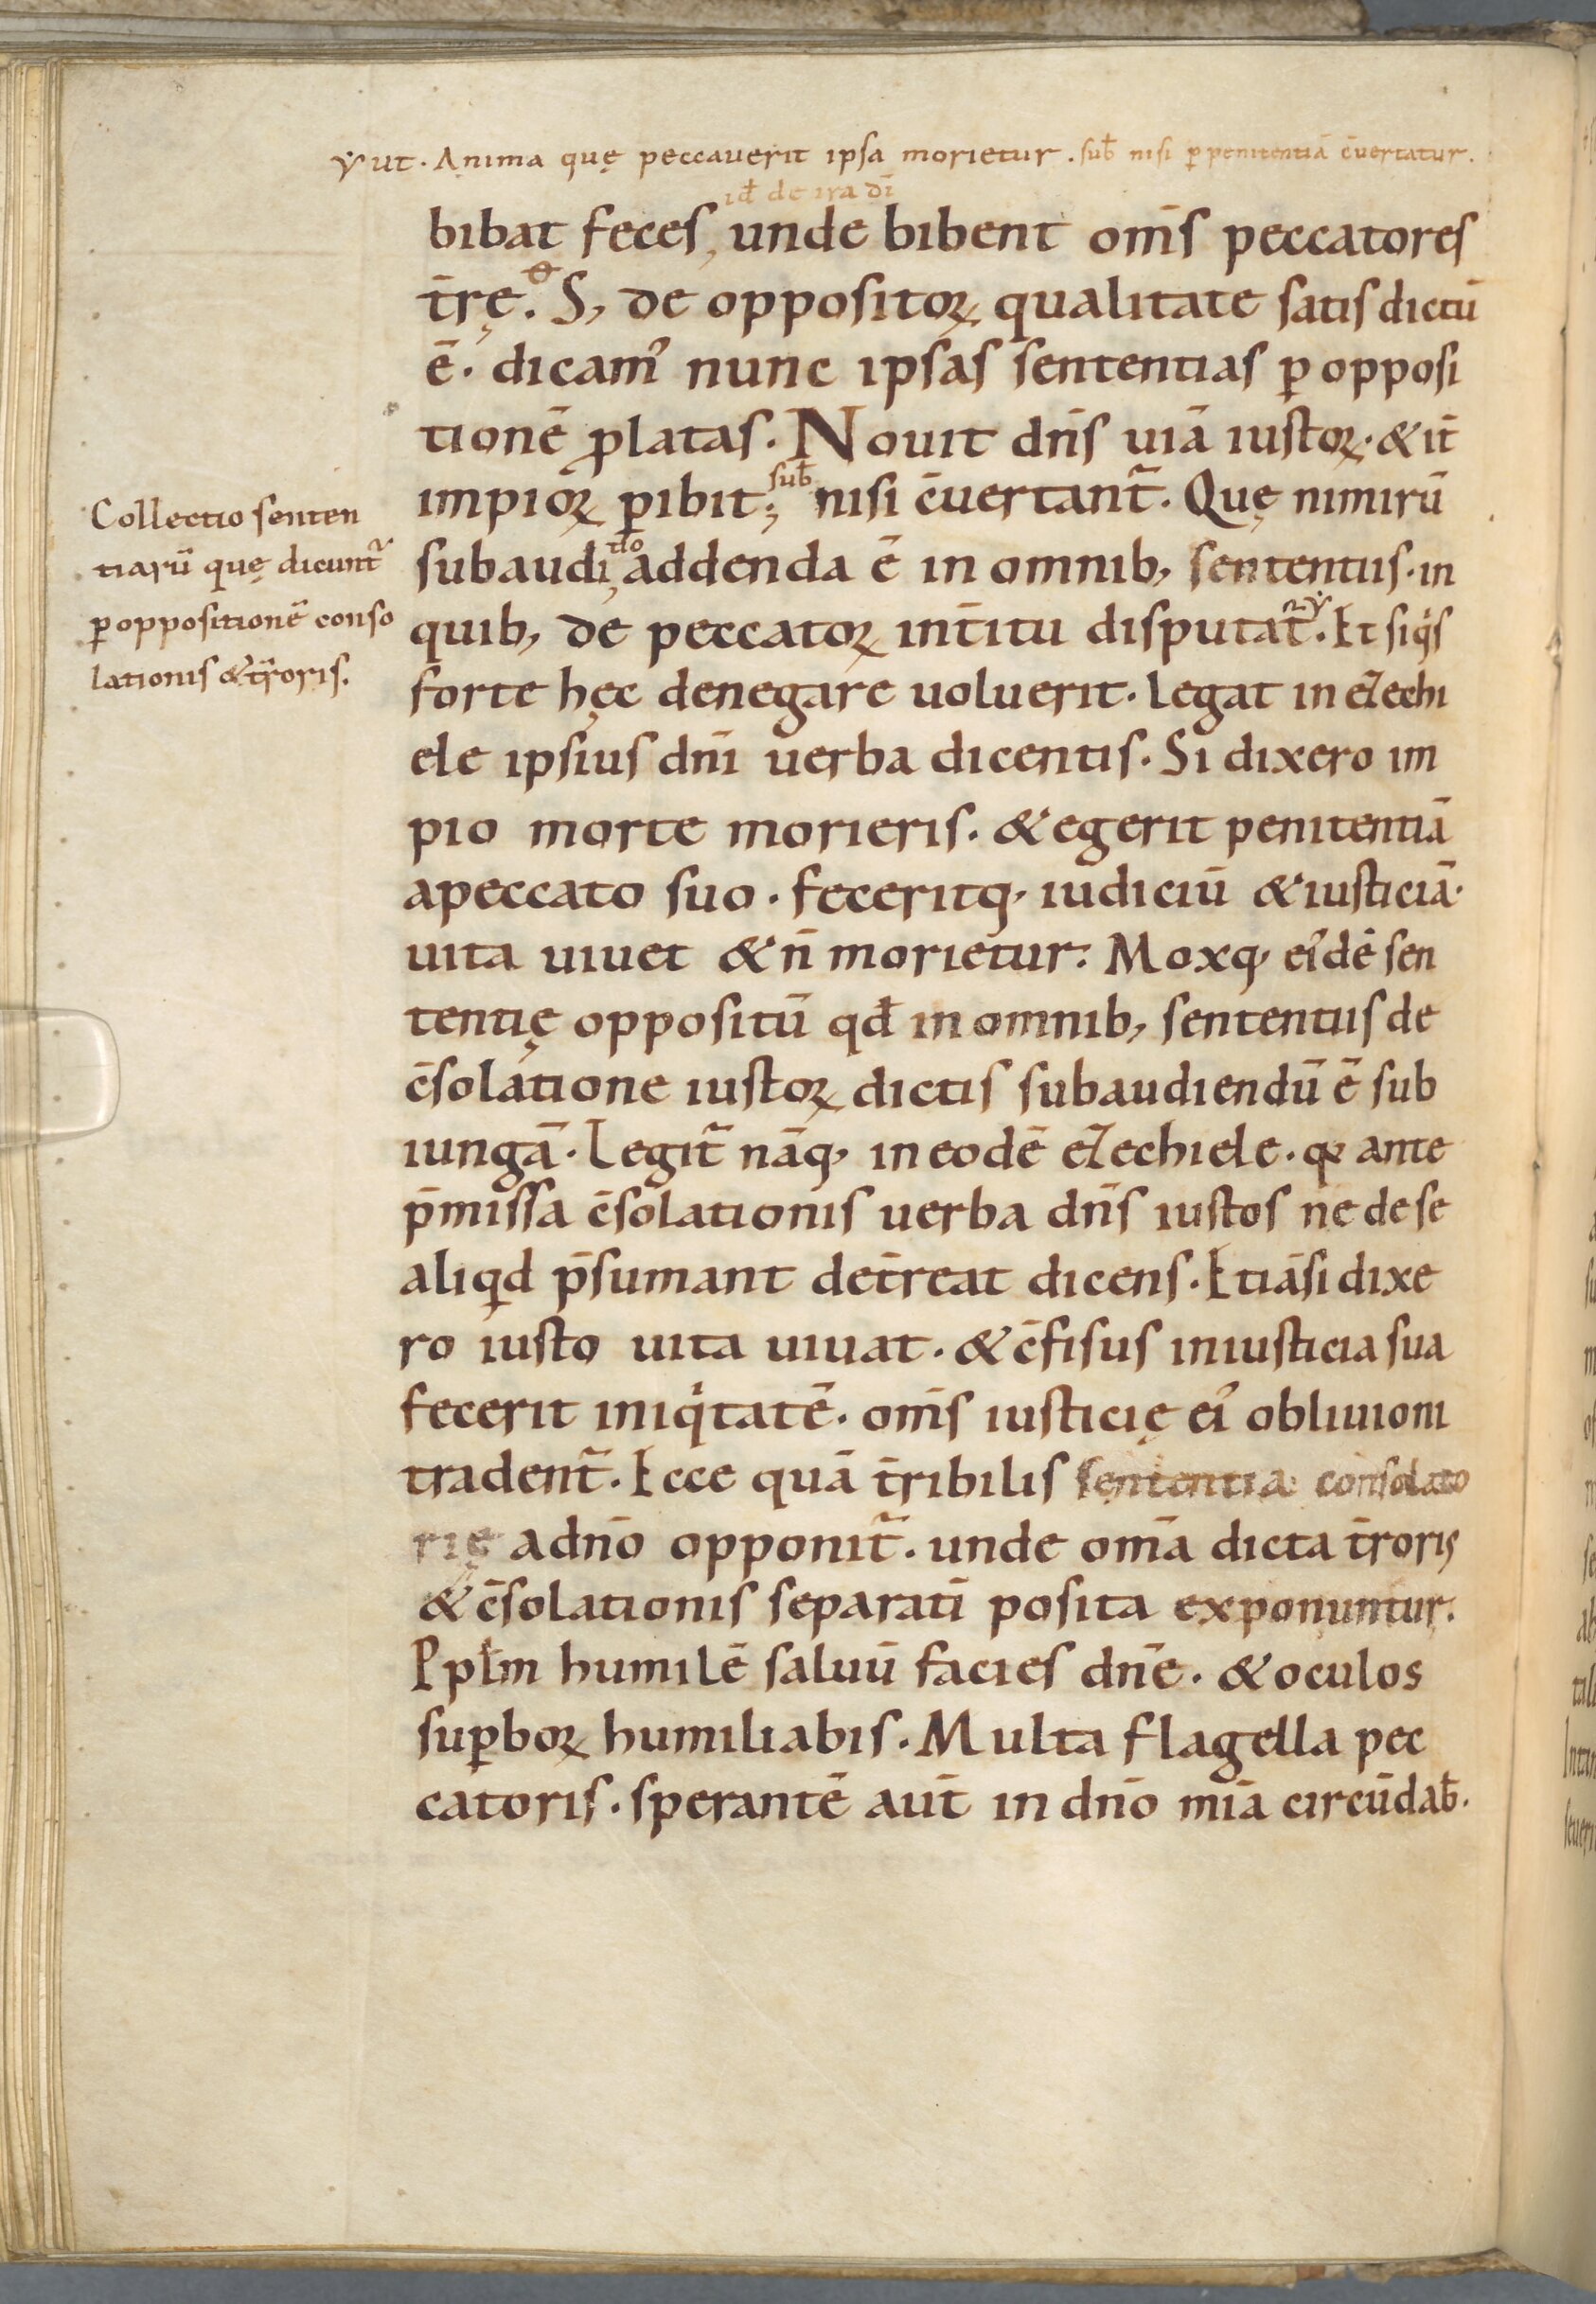 ut. Anima quę peccauerit ipsa morietur. sub̄ nisi ꝑ penitentiā c̄uertatur.
id̄ de ira dī
bibat feces, unde bibent om̄s peccatores
t̄rę. S, de oppositoꝝ qualitate satis dictū
ē. dicam᷒ nunc ipsas sententias ꝑ opposi
tionē ꝓlatas. Nouit dn̄s uiā iustoꝝ. & it̄
sub̄
impioꝝ ꝑibit; nisi c̄uertant᷑. Quę nimirū
tio
subaudi addenda ē in omnib, sententiis. in
quib, de peccatoꝝ int̄itu disputat᷑. Et siqͥs
forte hęc denegare uoluerit. Legat in ezechi
ele ipsius dn̄i uerba dicentis. Si dixero im
pio morte morieris. & egerit penitentiā
apeccato suo. feceritq, iudiciū & iusticiā.
uita uiuet & n̄ morietur. Moxq, ei᷒dē sen
tentię oppositū qd̄ in omnib, sententiis de
c̄solatione iustoꝝ dictis subaudiendū ē sub
iungā. Legit᷑ nāq, in eodē ezechiele. qꝫ ante
p̄missa c̄solationis uerba dn̄s iustos ne de se
aliqͥd p̄sumant det̄reat dicens. Etiāsi dixe
ro iusto uita uiuat. & c̄fisus iniusticia sua
fecerit iniqͥtatē. om̄s iusticię ei᷒ obliuioni
tradent᷑. Ecce quā t̄ribilis sententia consolato
rię adn̄o opponit᷑. unde om̄a dicta t̄roris
& c̄solationis separatī posita exponuntur.
Ppl̄m humilē saluū facies dn̄e. & oculos
suꝑboꝝ humiliabis. Multa flagella pec
catoris. sperantē aut̄ in dn̄o mīa circūdab̄.
Collectio senten
tiarū quę dicunt᷑
ꝑ oppositionē conso
lationis & t̄roris.